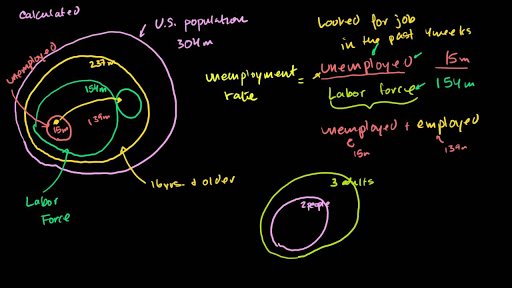 Calculated
U.S. population
304m
unemployed
237m
154m
139m
15m
16yrs + older
Labor
Force
Looked for job
in the past 4 weeks
unemployment
rate
=
unemployed
Labor force
15m
154m
unemployed + employed
15m
139m
3 adults
2 people